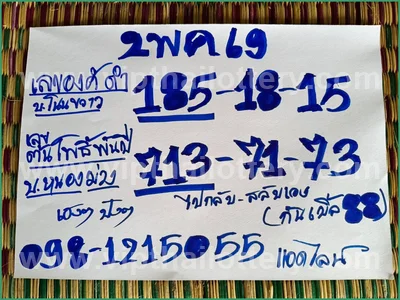 2พค69
เลของค์ดำ 185-18-15
บ.โนนขวาว
เลขต้นโพธิ์พันปี 713-71-73
บ.หนองม่วง
เฮงๆ ปังๆ ไปกลับ-สลับเอง
(กันเบิ้ล 88)
098-1215055 แอดไลน์
www.vipthailottery.com